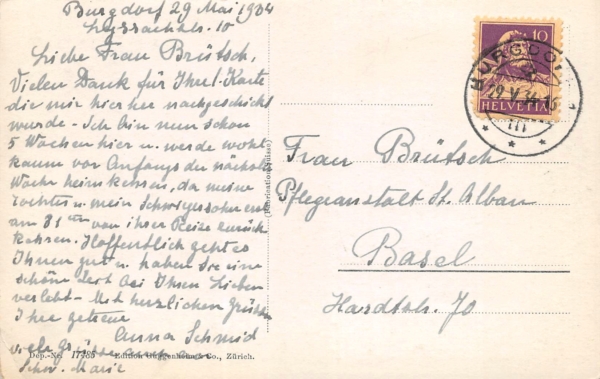 Burgdorf 29 Mai 1934
10
Liebe Frau Brütsch,
Vielen Dank für Ihre l. Karte
die mir hierher nachgeschickt
wurde - Ich bin nun schon
5 Wochen hier u. werde wohl
kaum vor Anfangs der nächste
Woche heimkehren, da meine
Tochter u. mein Schwiegersohn erst
am 31ten von ihrer Reise zurück
kehren. Hoffentlich geht es
Ihnen gut u. haben Sie eine
schöne Zeit bei Ihren Lieben
verlebt - Mit herzlichen Grüssen
Ihre getreue
Anna Schmid
viele Grüsse
Schw. Marie
Dép.-No. 17485 Edition Guggenheim & Co., Zürich.
(Fabrication Suisse)
10
HELVETIA
BURGDORF 1
29.V.34.16
III
Frau Brütsch
Pflegeanstalt St. Alban
Basel
Hardtstr. 70